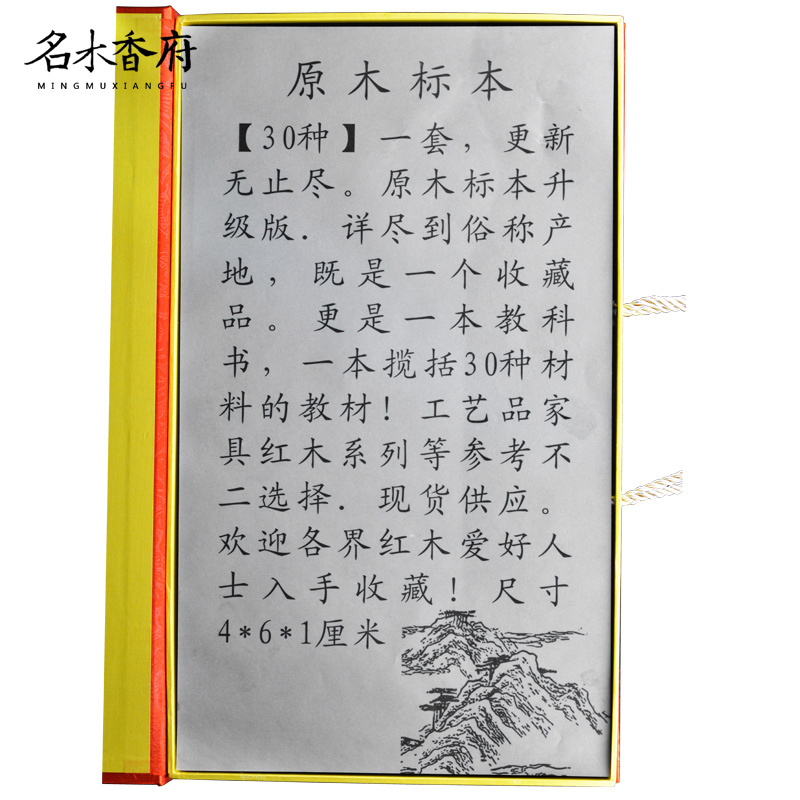 名木香府
MINGMUXIANGFU
原木标本
【30种】一套，更新
无止尽。原木标本升
级版．详尽到俗称产
地，既是一个收藏
品。更是一本教科
书，一本揽括30种材
料的教材！工艺品家
具红木系列等参考不
二选择．现货供应。
欢迎各界红木爱好人
士入手收藏！尺寸
4*6*1厘米